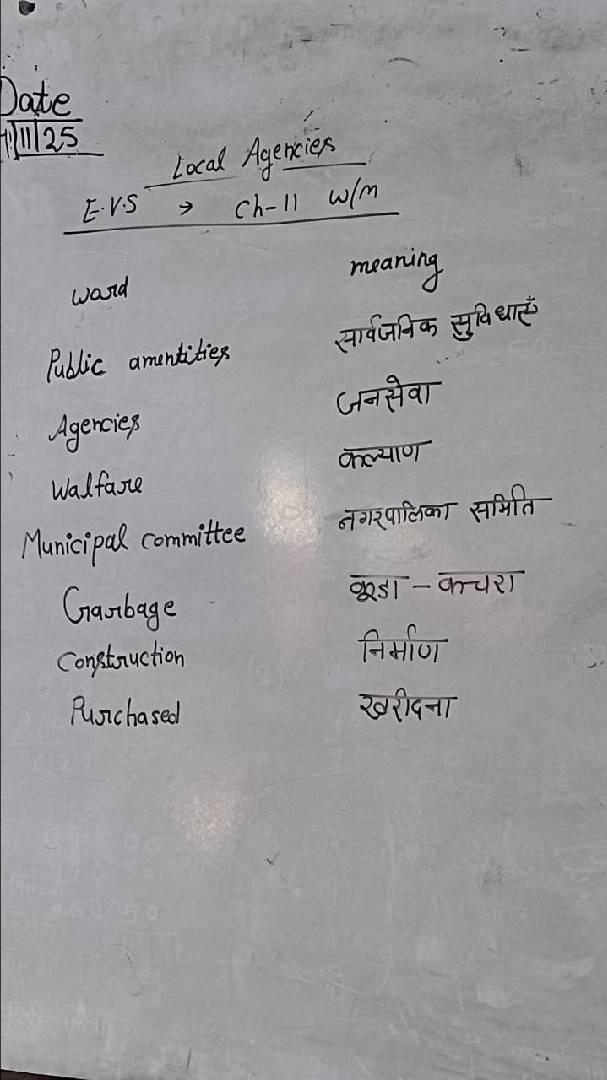 Date
11/11/25
Local Agencies
E.V.S → Ch-11 W/m
word meaning
Public amentities सार्वजनिक सुविधाएँ
Agencies जनसेवा
Walfare कल्याण
Municipal committee नगरपालिका समिति
Garbage कूडा - कचरा
Construction निर्माण
Purchased खरीदना